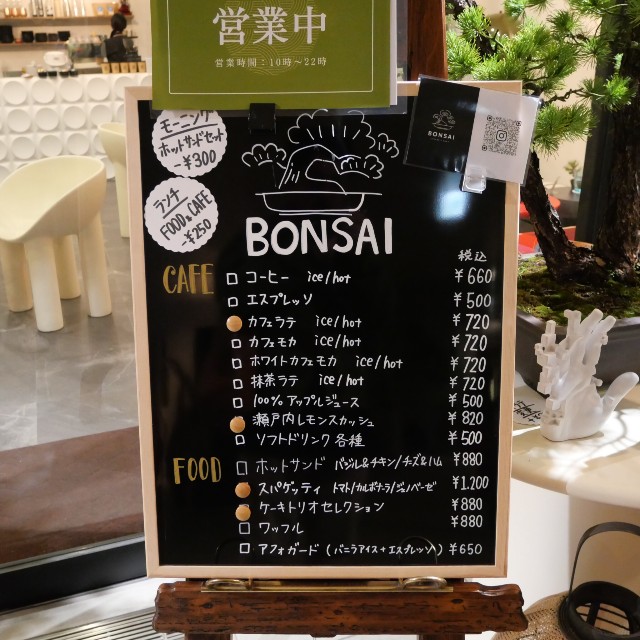 営業中
営業時間：10時～22時
モーニング
ホットサンドセット
-¥300
ランチ
FOOD & CAFE
-¥250
BONSAI
BONSAI
税込
CAFE
コーヒー ice/hot ¥660
エスプレッソ ¥500
カフェラテ ice/hot ¥720
カフェモカ ice/hot ¥720
ホワイトカフェモカ ice/hot ¥720
抹茶ラテ ice/hot ¥720
100% アップルジュース ¥500
瀬戸内レモンスカッシュ ¥820
ソフトドリンク各種 ¥500
FOOD
ホットサンド バジル&チキン/チーズ&ハム ¥880
スパゲッティ トマト/カルボナーラ/ジェノベーゼ ¥1,200
ケーキトリオセレクション ¥880
ワッフル ¥880
アフォガード (バニラアイス+エスプレッソ) ¥650